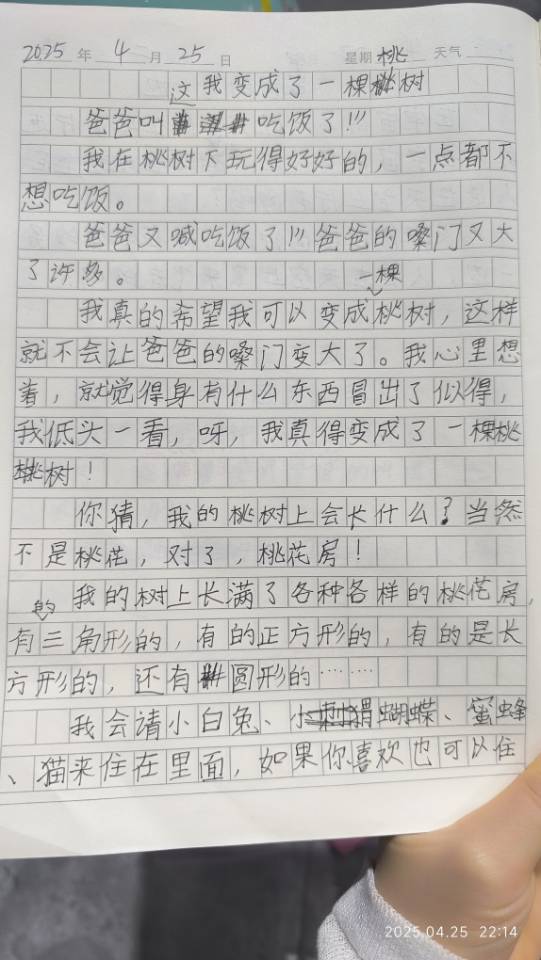 2025 年 4 月 25 日 星期 桃 天气
这我变成了一棵桃树
爸爸叫吃饭了!!!
我在桃树下玩得好好的，一点都不
想吃饭。
爸爸又喊吃饭了!!!爸爸的嗓门又大
了许多。
一棵
我真的希望我可以变成桃树，这样
就不会让爸爸的嗓门变大了。我心里想
着，就觉得身有什么东西冒出了似得，
我低头一看，呀，我真得变成了一棵桃
桃树！
你猜，我的桃树上会长什么？当然
不是桃花，对了，桃花房！
我的树上长满了各种各样的桃花房，
的
有三角形的，有的正方形的，有的是长
方形的，还有圆形的……
我会请小白兔、小刺猬蝴蝶、蜜蜂
、猫来住在里面，如果你喜欢也可以住
2025.04.25 22:14